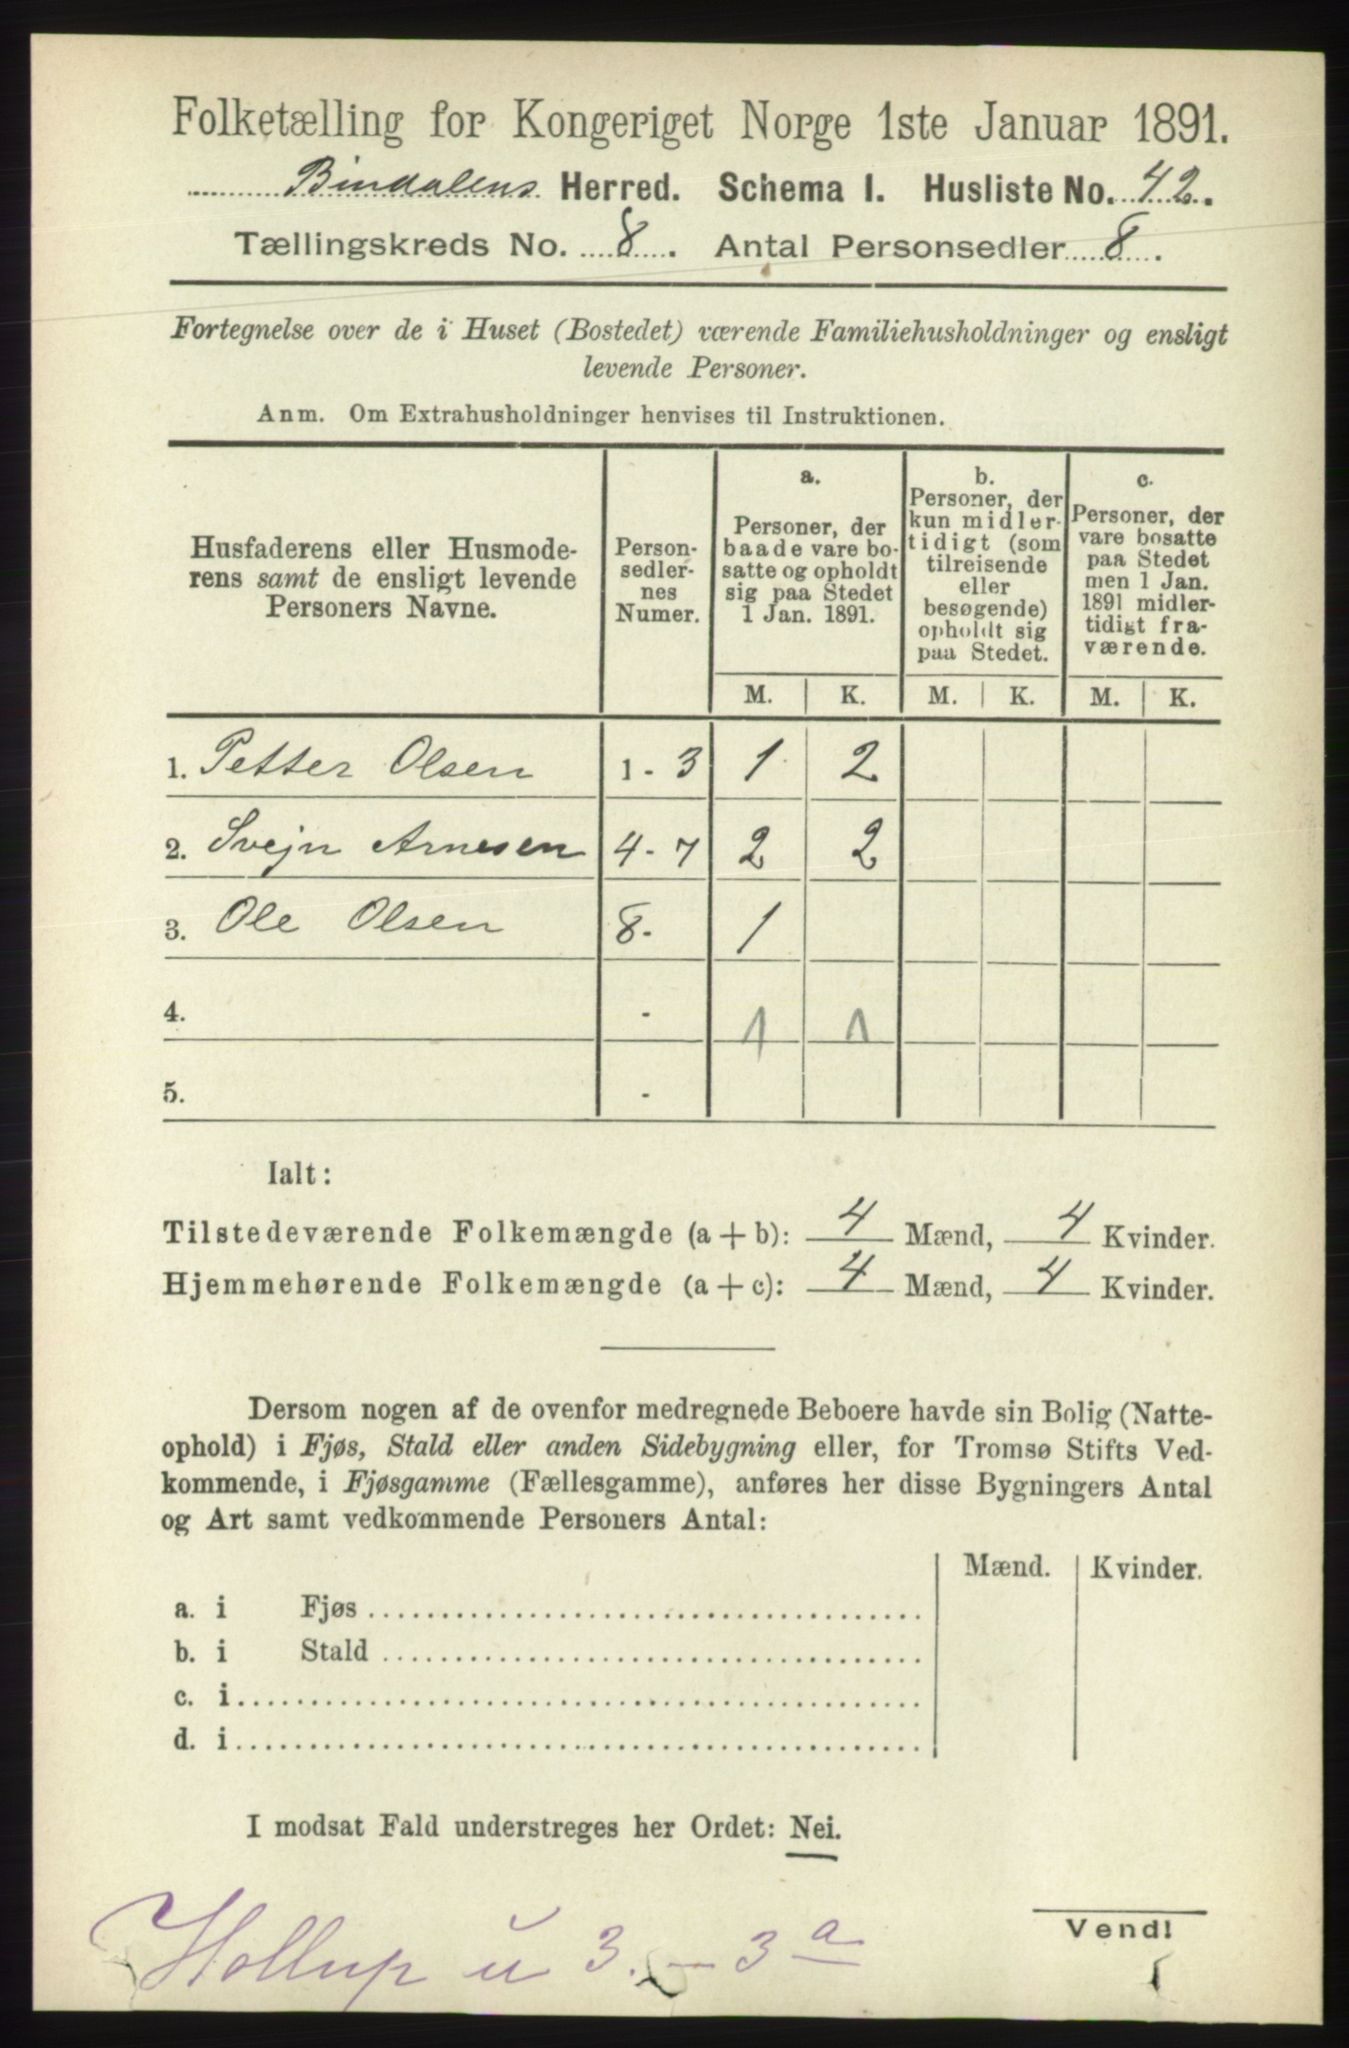 Folketælling for Kongeriget Norge 1ste Januar 1891.
Bindalens Herred. Schema I. Husliste No. 42.
Tællingskreds No. 8. Antal Personsedler 8.
Fortegnelse over de i Huset (Bostedet) værende Familiehusholdninger og ensligt
levende Personer.
Anm. Om Extrahusholdninger henvises til Instruktionen.
Husfaderens eller Husmode-
rens samt de ensligt levende
Personers Navne.
Person-
sedler-
nes
Numer.
a.
Personer, der
baade vare bo-
satte og opholdt
sig paa Stedet
1 Jan. 1891.
b.
Personer, der
kun midler-
tidigt (som
tilreisende
eller
besøgende)
opholdt sig
paa Stedet.
c.
Personer, der
vare bosatte
paa Stedet
men 1 Jan.
1891 midler-
tidigt fra-
værende.
M. K. M. K. M. K.
1. Petter Olsen 1 - 3 1 2
2. Svejn Arnesen 4 - 7 2 2
3. Ole Olsen 8 - 1
4. - 1 1
5. -
Ialt:
Tilstedeværende Folkemængde (a + b): 4 Mænd, 4 Kvinder.
Hjemmehørende Folkemængde (a + c): 4 Mænd, 4 Kvinder.
Dersom nogen af de ovenfor medregnede Beboere havde sin Bolig (Natte-
ophold) i Fjøs, Stald eller anden Sidebygning eller, for Tromsø Stifts Ved-
kommende, i Fjøsgamme (Fællesgamme), anføres her disse Bygningers Antal
og Art samt vedkommende Personers Antal:
Mænd. Kvinder.
a. i Fjøs
b. i Stald
c. i
d. i
I modsat Fald understreges her Ordet: Nei.
Vend!
Hollup u 3. - 3a